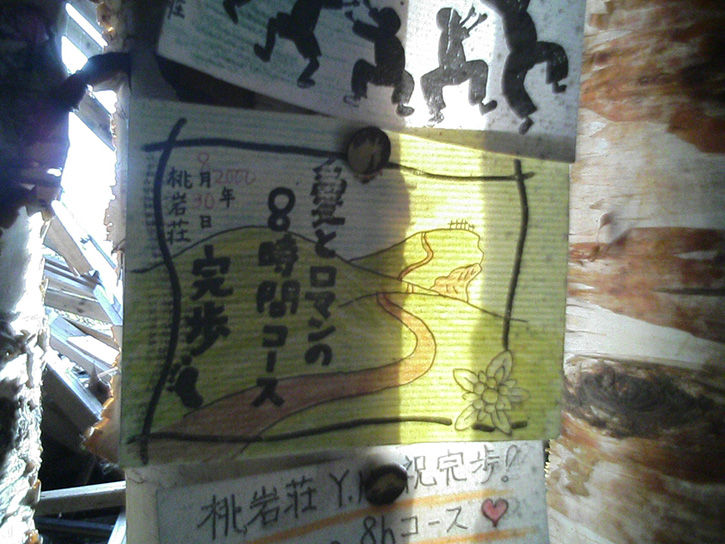 荘
愛とロマンの
8時間コース
完歩
2000年
9月30日
桃岩荘
桃岩荘 Y.H 祝完歩!
8hコース♥